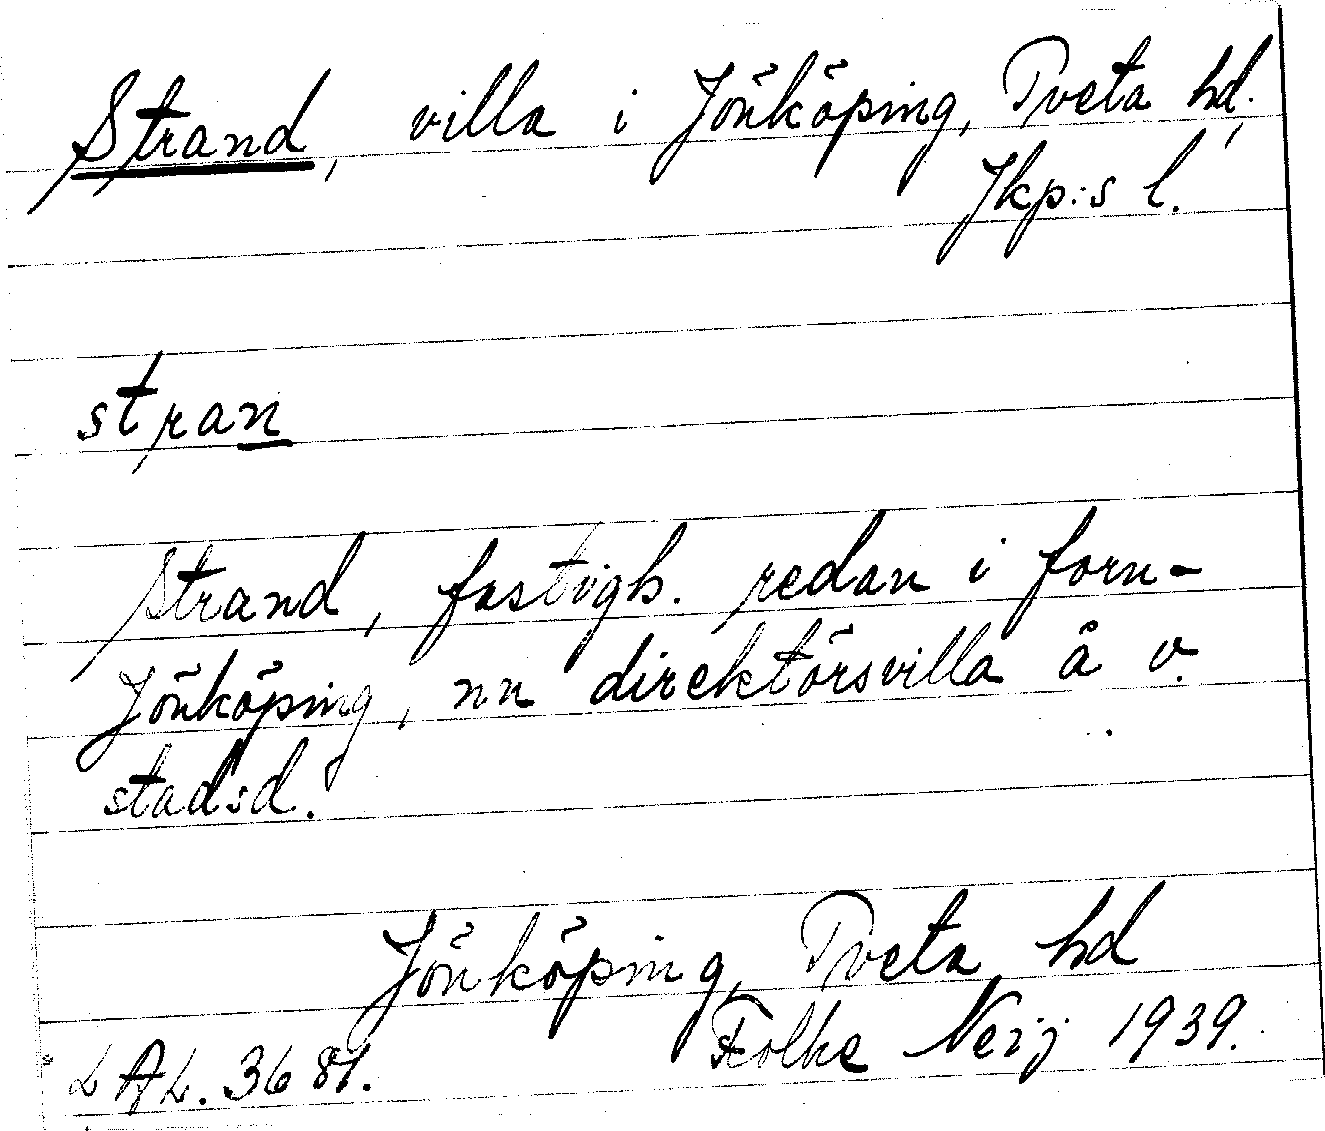 Strand, villa i Jönköping, Tveta hd,
Jkp:s l.
stran
Strand, fastigh. redan i forn-
Jönköping, nu direktörsvilla å v.
stadsd.
Jönköping, Tveta hd
LAL. 3681. Folke Neij 1939.